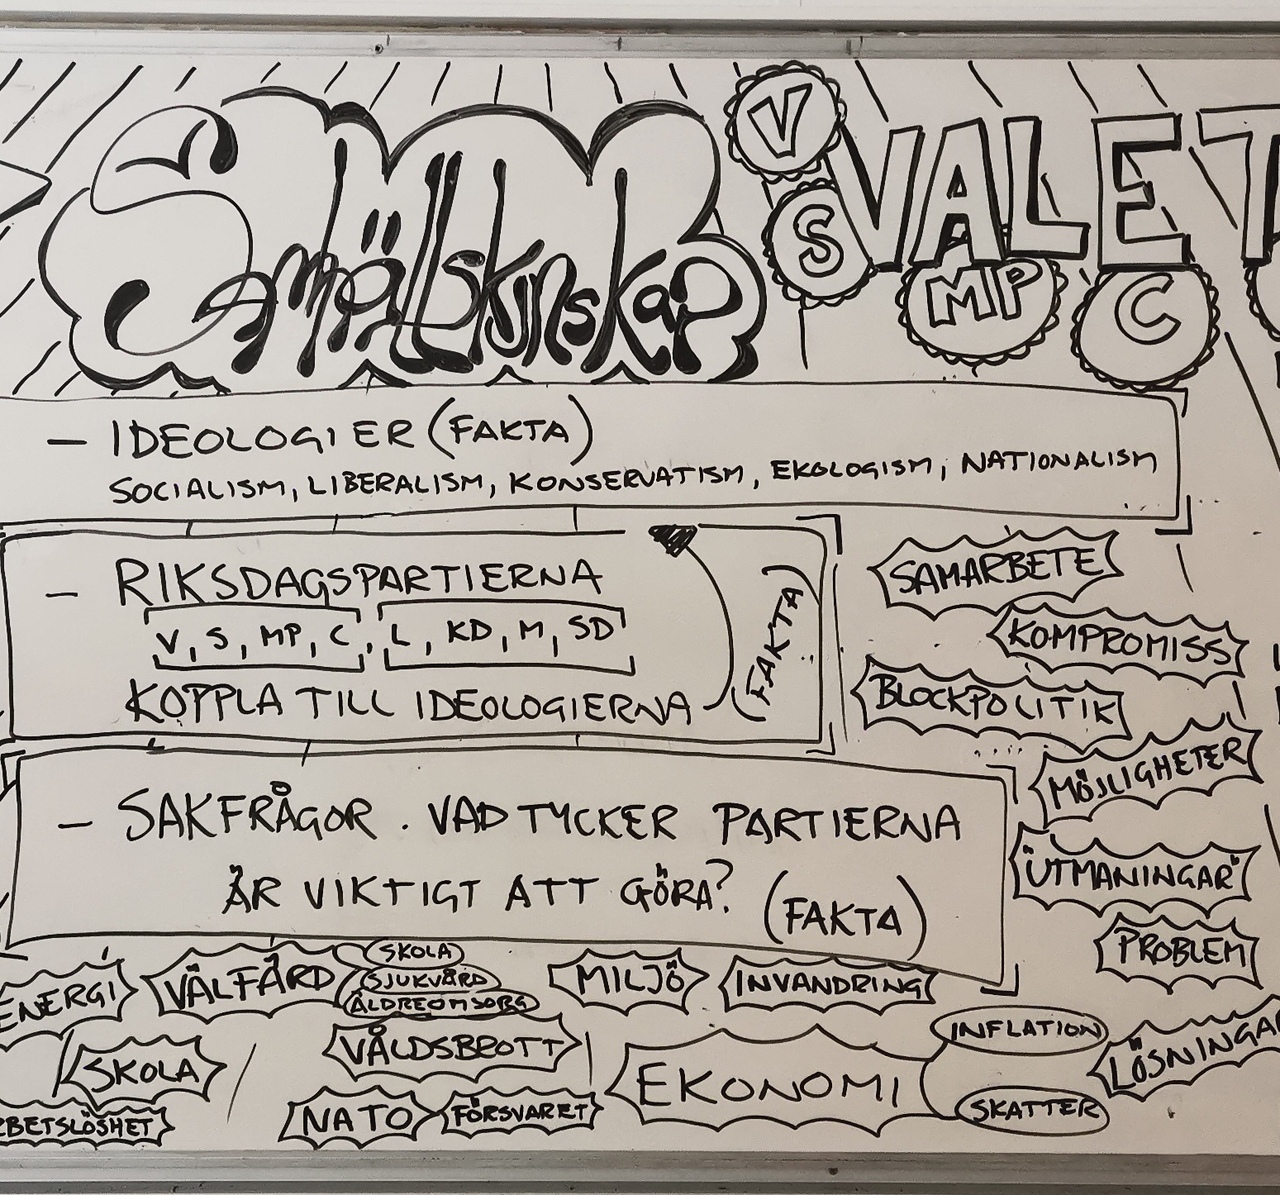 Samhällskunskap
VALET
V
S
MP
C
– IDEOLOGIER (FAKTA)
SOCIALISM, LIBERALISM, KONSERVATISM, EKOLOGISM, NATIONALISM
– RIKSDAGSPARTIERNA
V, S, MP, C, L, KD, M, SD
KOPPLA TILL IDEOLOGIERNA
(FAKTA)
SAMARBETE
KOMPROMISS
BLOCKPOLITIK
MÖJLIGHETER
"UTMANINGAR"
PROBLEM
LÖSNINGAR
– SAKFRÅGOR. VAD TYCKER PARTIERNA
ÄR VIKTIGT ATT GÖRA? (FAKTA)
ENERGI
VÄLFÄRD
SKOLA
SJUKVÅRD
ÄLDREOMSORG
MILJÖ
INVANDRING
SKOLA
VÅLDSBROTT
EKONOMI
INFLATION
SKATTER
BETSLÖSHET
NATO
FÖRSVARET